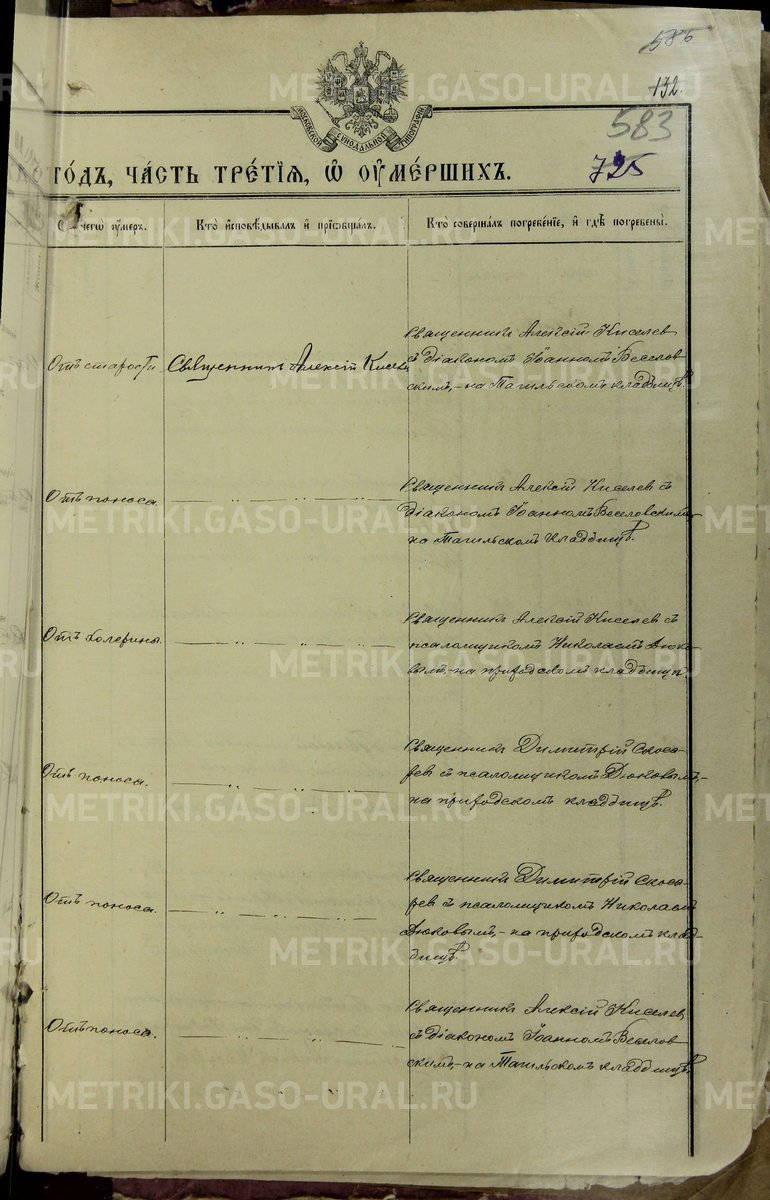 585
132.
МОСКОВСКОЙ СѴНОДАЛЬНОЙ ТИПОГРАФІИ
583
ГО́ДЪ, ЧА́СТЬ ТРЕ́ТІѦ, Ѡ҆ ОУ҆МЕ́РШИХЪ.
725
Ѿ чегѡ̀ оу҆́меръ.
Кто̀ и҆сповѣ́дывалъ и҆ прїѡбща́лъ.
Кто̀ соверша́лъ погребе́нїе, и҆ гдѣ̀ погребены̀.
Отъ старости
Священникъ Алексій Киселев
Священникъ Алексій Киселев
съ Діакономъ Іоанномъ Веселов
скимъ,-на Тагильскомъ кладбищѣ.
Отъ поноса.
— „ — „ — „ —
Священникъ Алексій Киселев съ
Діакономъ Іоанномъ Веселовскимъ,-
на Тагильскомъ кладбищѣ.
Отъ холерины.
— „ — „ — „ —
Священникъ Алексій Киселев съ
псаломщикомъ Николаемъ Дюко-
вымъ,-на приходскомъ кладбищѣ
Отъ поноса.
— „ — „ — „ —
Священникъ Димитрій Скоса-
рев съ псаломщикомъ Дюковымъ,-
на приходскомъ кладбищѣ.
Отъ поноса.
— „ — „ — „ —
Священникъ Димитрій Скоса-
рев съ псаломщикомъ Николаемъ
Дюковымъ,-на приходскомъ клад-
бищѣ.
Отъ поноса.
— „ — „ — „ —
Священникъ Алексій Киселев,
съ Діакономъ Іоанномъ Веселов
скимъ,-на Тагильскомъ кладбищѣ.
METRIKI.GASO-URAL.RU